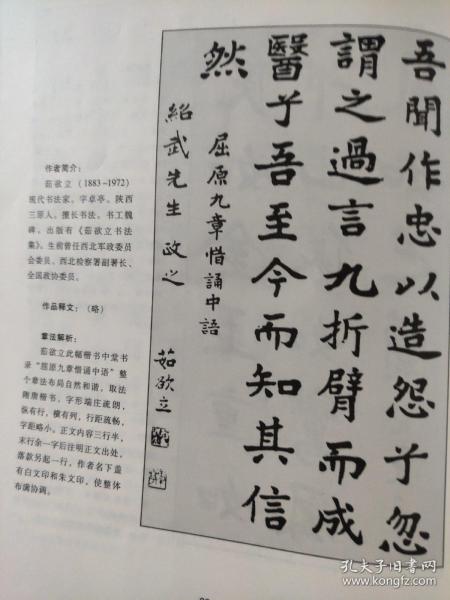 吾聞作忠以造怨兮忽
謂之過言九折臂而成
醫兮吾至今而知其信
然
屈原九章惜誦中語
紹武先生 政之
茹欲立
作者简介：
茹欲立（1883-1972）
现代书法家，字卓亭。陕西
三原人。擅长书法，书工魏
碑，出版有《茹欲立书法
集》。生前曾任西北军政委员
会委员、西北检察署副署长、
全国政协委员。
作品释文：（略）
章法解析：
茹欲立此幅楷书中堂书
录“屈原九章惜诵中语”整
个章法布局自然和谐，取法
隋唐楷书，字形端庄疏朗，
纵有行，横有列，行距疏畅，
字距略小。正文内容三行半，
末行余一字后注明正文出处，
落款另起一行，作者名下盖
有白文印和朱文印，使整体
布满协调。
孔夫子旧书网
www.kongfz.com